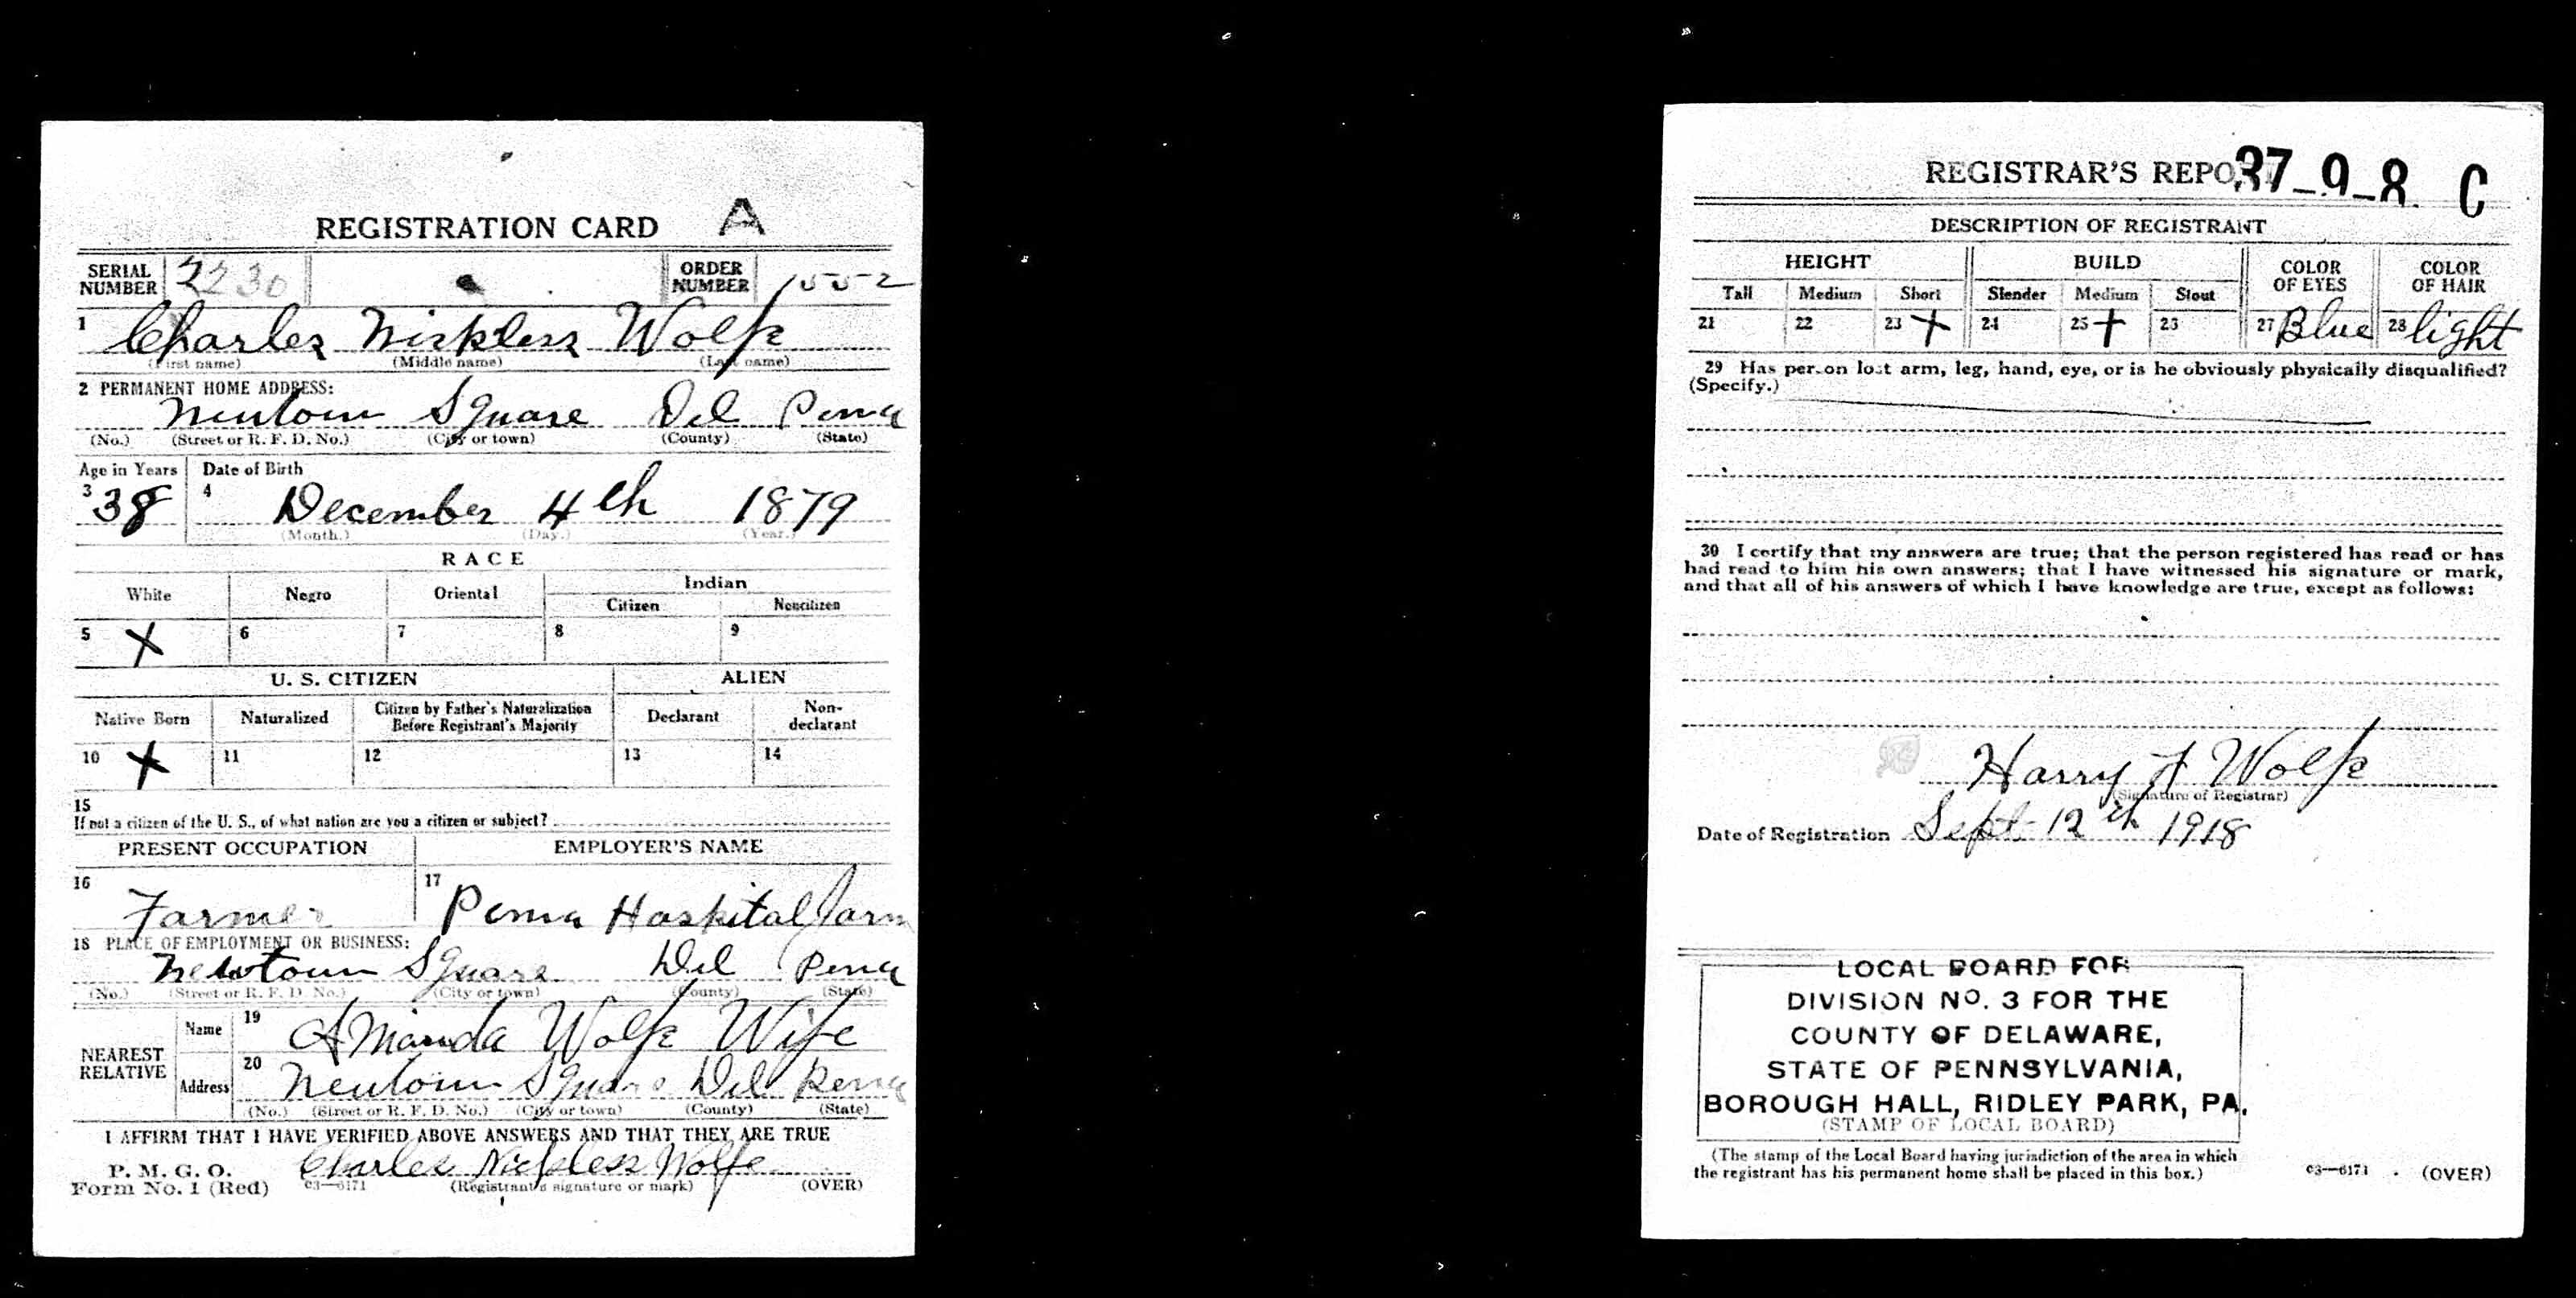 REGISTRATION CARD A
SERIAL NUMBER 2230 ORDER NUMBER 1552
1 Charles Nickless Wolfe
(First name) (Middle name) (Last name)
2 PERMANENT HOME ADDRESS:
Newtown Square Del Penna
(No.) (Street or R. F. D. No.) (City or town) (County) (State)
Age in Years Date of Birth
3 38 4 December 4th 1879
(Month.) (Day.) (Year.)
RACE
White Negro Oriental Indian
Citizen Noncitizen
5 X 6 7 8 9
U. S. CITIZEN ALIEN
Native Born Naturalized Citizen by Father's Naturalization Before Registrant's Majority Declarant Non-declarant
10 X 11 12 13 14
15
If not a citizen of the U. S., of what nation are you a citizen or subject?
PRESENT OCCUPATION EMPLOYER'S NAME
16 Farmer 17 Penna Hospital farm
18 PLACE OF EMPLOYMENT OR BUSINESS:
Newtown Square Del Penna
(No.) (Street or R. F. D. No.) (City or town) (County) (State)
NEAREST RELATIVE
Name 19 Amanda Wolfe Wife
Address 20 Newtown Square Del Penna
(No.) (Street or R. F. D. No.) (City or town) (County) (State)
I AFFIRM THAT I HAVE VERIFIED ABOVE ANSWERS AND THAT THEY ARE TRUE
P. M. G. O.
Form No. 1 (Red) 03—6171 Charles Nickless Wolfe
(Registrant's signature or mark) (OVER)
REGISTRAR'S REPORT 37-9-8 C
DESCRIPTION OF REGISTRANT
HEIGHT BUILD COLOR OF EYES COLOR OF HAIR
Tall Medium Short Slender Medium Stout
21 22 23 X 24 25 X 26 27 Blue 28 light
29 Has person lost arm, leg, hand, eye, or is he obviously physically disqualified?
(Specify.)
30 I certify that my answers are true; that the person registered has read or has
had read to him his own answers; that I have witnessed his signature or mark,
and that all of his answers of which I have knowledge are true, except as follows:
Harry F Wolfe
(Signature of Registrar)
Date of Registration Sept 12th 1918
LOCAL BOARD FOR
DIVISION NO. 3 FOR THE
COUNTY OF DELAWARE,
STATE OF PENNSYLVANIA,
BOROUGH HALL, RIDLEY PARK, PA.
(STAMP OF LOCAL BOARD)
(The stamp of the Local Board having jurisdiction of the area in which
the registrant has his permanent home shall be placed in this box.)
03—6171 (OVER)